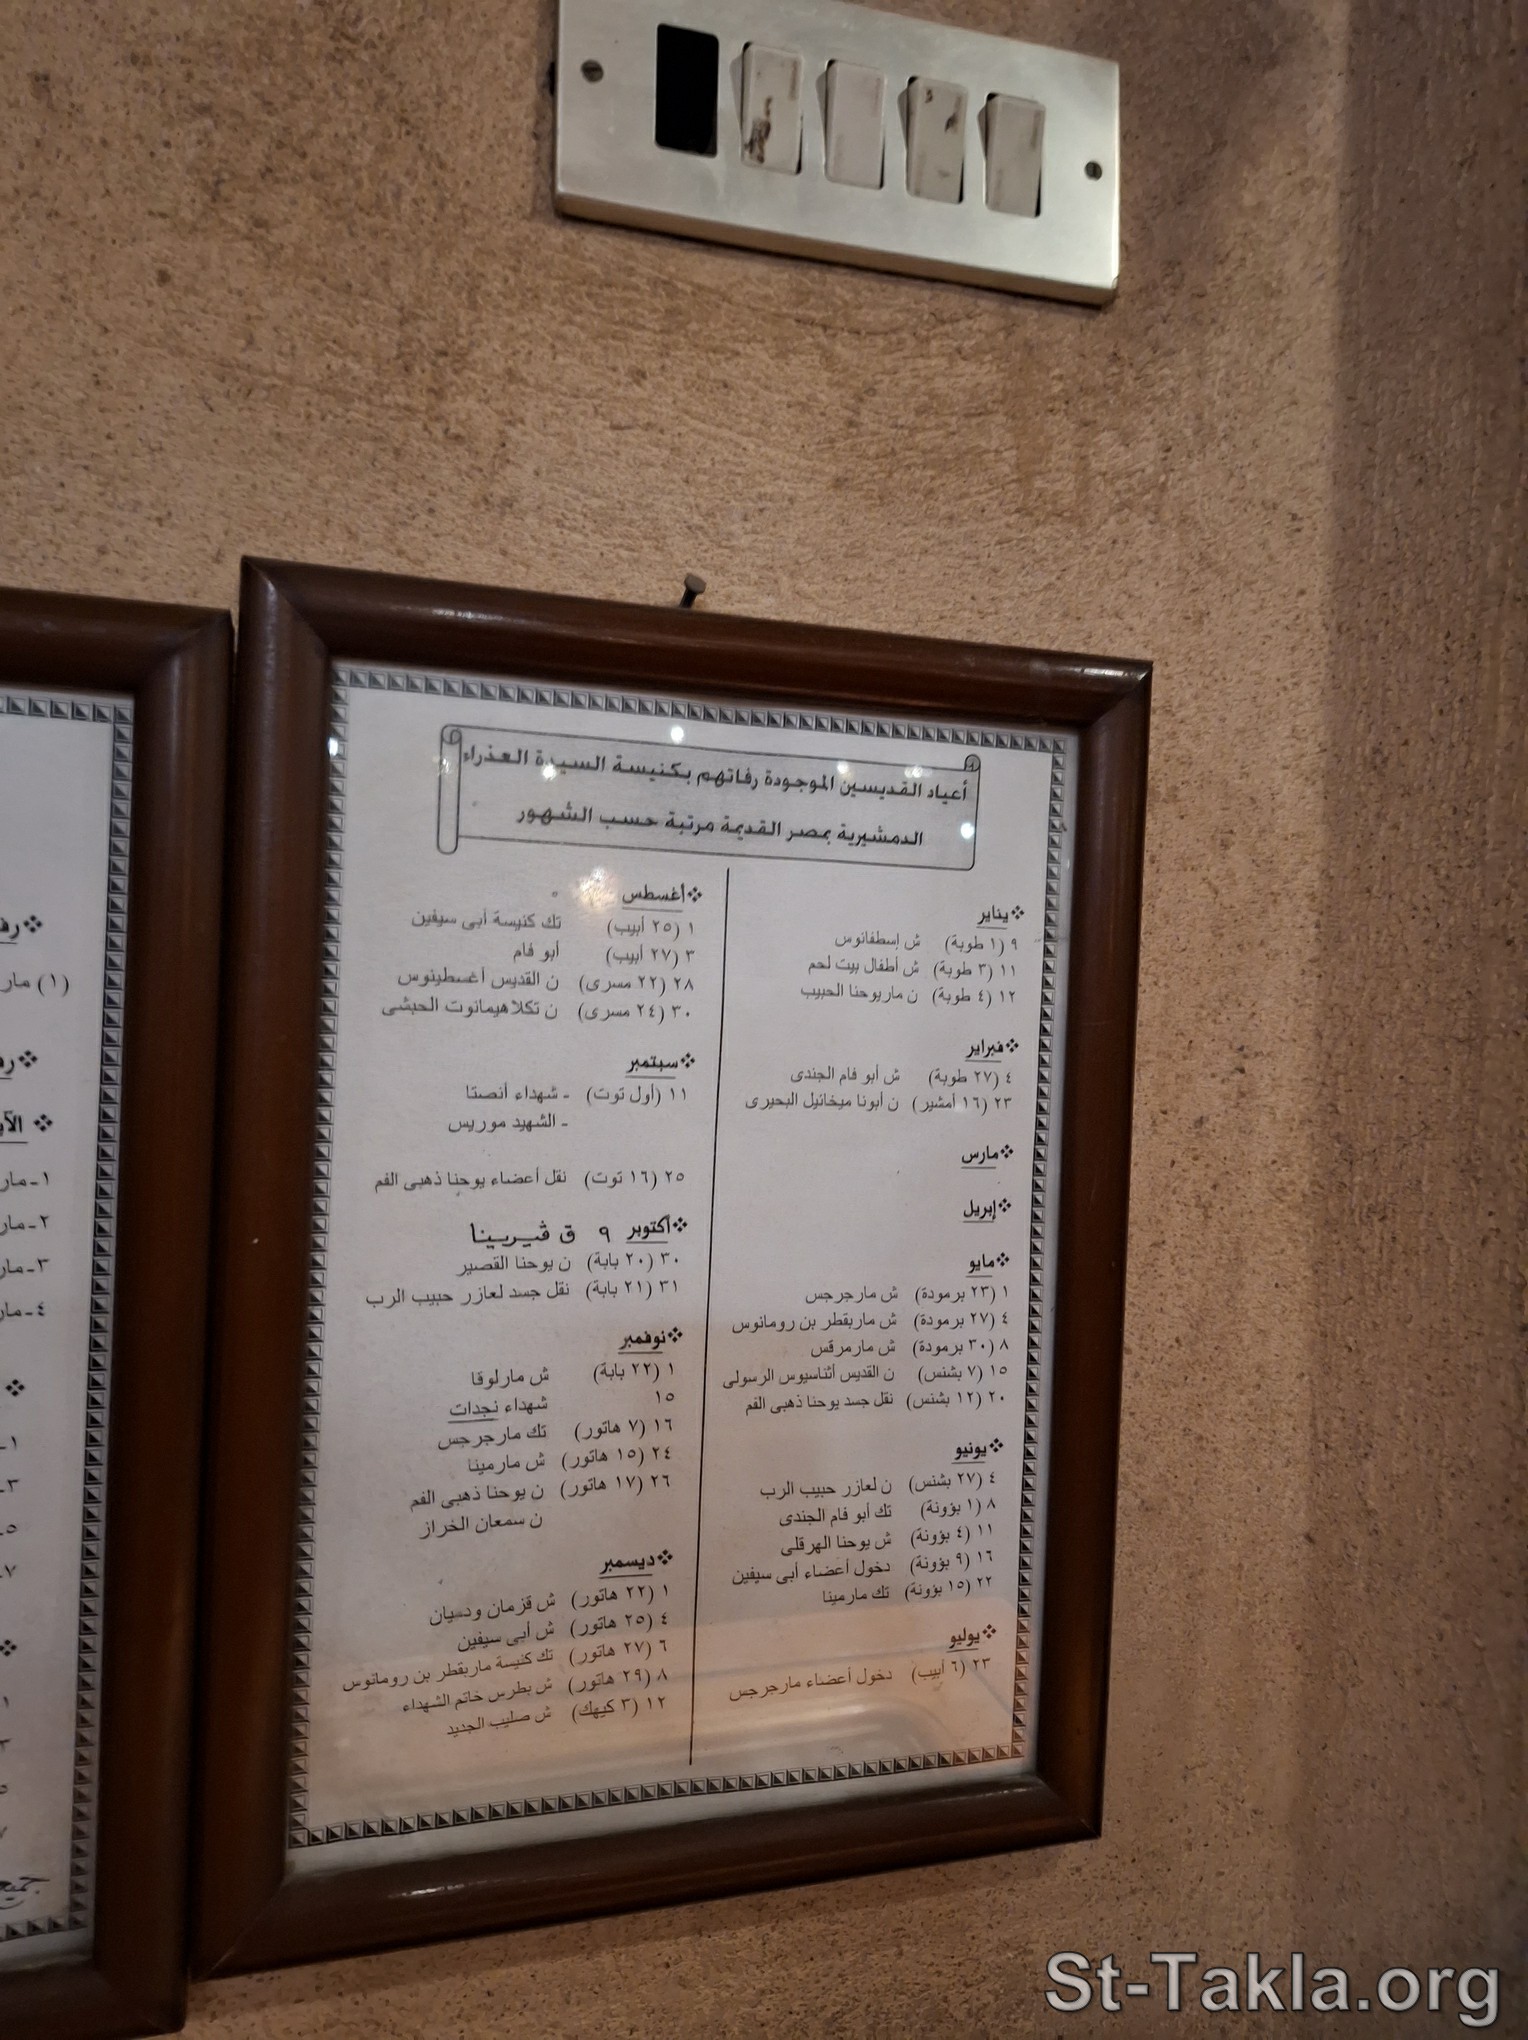 أعياد القديسين الموجودة رفاتهم بكنيسة السيدة العذراء
الدمشيرية بمصر القديمة مرتبة حسب الشهور
يناير
٩ (١ طوبة) ش إسطفانوس
١١ (٣ طوبة) ش أطفال بيت لحم
١٢ (٤ طوبة) ن ماريوحنا الحبيب
فبراير
٤ (٢٧ طوبة) ش أبو فام الجندى
٢٣ (١٦ أمشير) ن أبونا ميخائيل البحيرى
مارس
إبريل
مايو
١ (٢٣ برمودة) ش مارجرجس
٤ (٢٧ برمودة) ش ماربقطر بن رومانوس
٨ (٣٠ برمودة) ش مارمرقس
١٥ (٧ بشنس) ن القديس أثناسيوس الرسولى
٢٠ (١٢ بشنس) نقل جسد يوحنا ذهبى الفم
يونيو
٤ (٢٧ بشنس) ن لعازر حبيب الرب
٨ (١ بؤونة) تك أبو فام الجندى
١١ (٤ بؤونة) ش يوحنا الهرقلى
١٦ (٩ بؤونة) دخول أعضاء أبى سيفين
٢٢ (١٥ بؤونة) تك مارمينا
يوليو
٢٣ (٦ أبيب) دخول أعضاء مارجرجس
أغسطس
١ (٢٥ أبيب) تك كنيسة أبى سيفين
٣ (٢٧ أبيب) أبو فام
٢٨ (٢٢ مسرى) ن القديس أغسطينوس
٣٠ (٢٤ مسرى) ن تكلاهيمانوت الحبشى
سبتمبر
١١ (أول توت) - شهداء أنصتا
- الشهيد موريس
٢٥ (١٦ توت) نقل أعضاء يوحنا ذهبى الفم
أكتوبر ٩ ق ڤيرينا
٣٠ (٢٠ بابة) ن يوحنا القصير
٣١ (٢١ بابة) نقل جسد لعازر حبيب الرب
نوفمبر
١ (٢٢ بابة) ش مارلوقا
١٥ شهداء نجدات
١٦ (٧ هاتور) تك مارجرجس
٢٤ (١٥ هاتور) ش مارمينا
٢٦ (١٧ هاتور) ن يوحنا ذهبى الفم
ن سمعان الخراز
ديسمبر
١ (٢٢ هاتور) ش قزمان ودسيان
٤ (٢٥ هاتور) ش أبى سيفين
٦ (٢٧ هاتور) تك كنيسة ماربقطر بن رومانوس
٨ (٢٩ هاتور) ش بطرس خاتم الشهداء
١٢ (٣ كيهك) ش صليب الجديد
(١) مار
١- مار
٢- مار
٣- مار
٤- مار
St-Takla.org